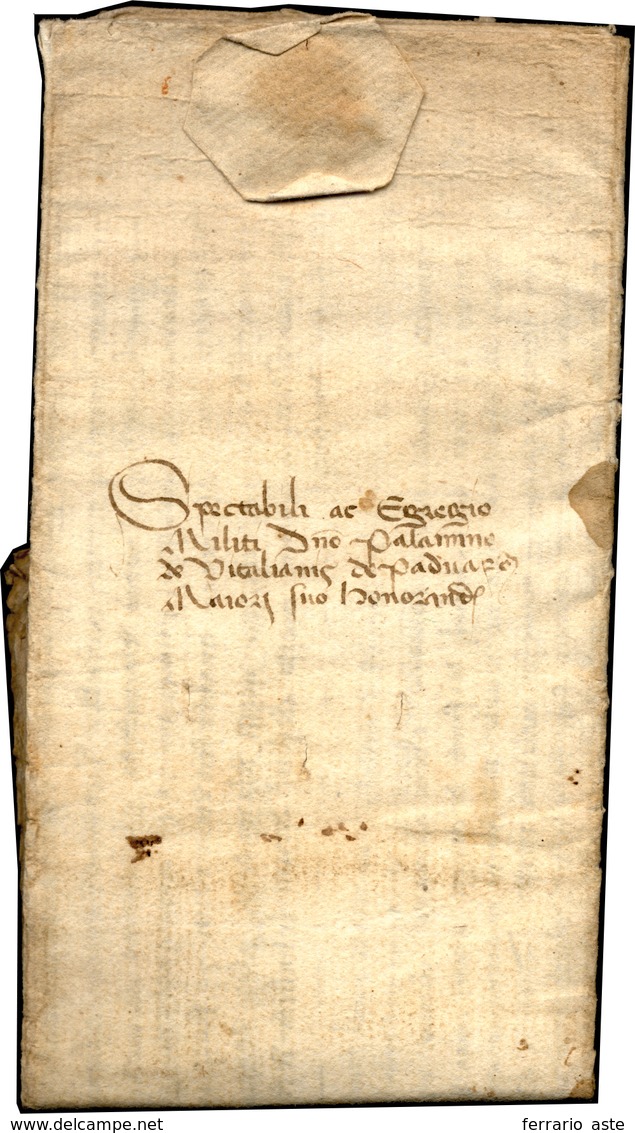 Spectabili ac Egregio
Militi Dno Palamino
de Vitalianis de Padua
Maiori suo honorand
delcampe.net
ferrario aste